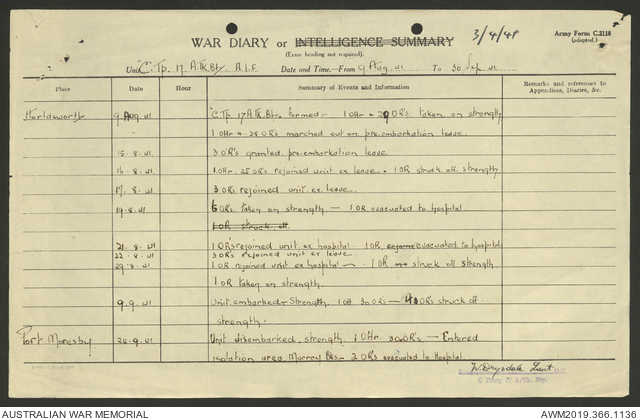 WAR DIARY or INTELLIGENCE SUMMARY
3/4/41
Army Form C.2118
(adapted.)
(Erase heading not required).
Unit "C" Tp. 17. A.Tk.Bty. A.I.F. Date and Time—From 9 Aug 41 To 30 Sep 41
Place Date Hour Summary of Events and Information Remarks and references to Appendices, Diaries, &c.
9 Aug 41 "C" Tp. 17 A.Tk.Bty. formed - 1 Offr + 29 OR's taken on strength
1 Offr + 28 OR's marched out on pre-embarkation leave.
15.8.41 3 OR's granted pre-embarkation leave
16.8.41 1 Offr. 25 ORs rejoined unit ex leave. 1 OR struck off strength
17.8.41 3 ORs rejoined unit ex leave.
19.8.41 6 ORs. taken on strength — 1 OR evacuated to hospital
1 OR struck off
21.8.41 1 OR's rejoined unit ex hospital 1 OR rejoined evacuated to hospital
22.8.41 3 OR's rejoined unit ex leave
29.8.41 1 OR rejoined unit ex hospital — 1 OR struck off strength
1 OR taken on strength.
9.9.41 Unit embarked - Strength 1 Off 30 OR's — 4 ORs struck off
strength.
Port Moresby 22.9.41 Unit disembarked, strength 1 Offr. 30 OR's — Entered
isolation area Murray Bks — 2 OR's evacuated to Hospital
W Drysdale Lieut
O.C.
C Troop 17 A/Tk. Bty.
AUSTRALIAN WAR MEMORIAL AWM2019.366.1136